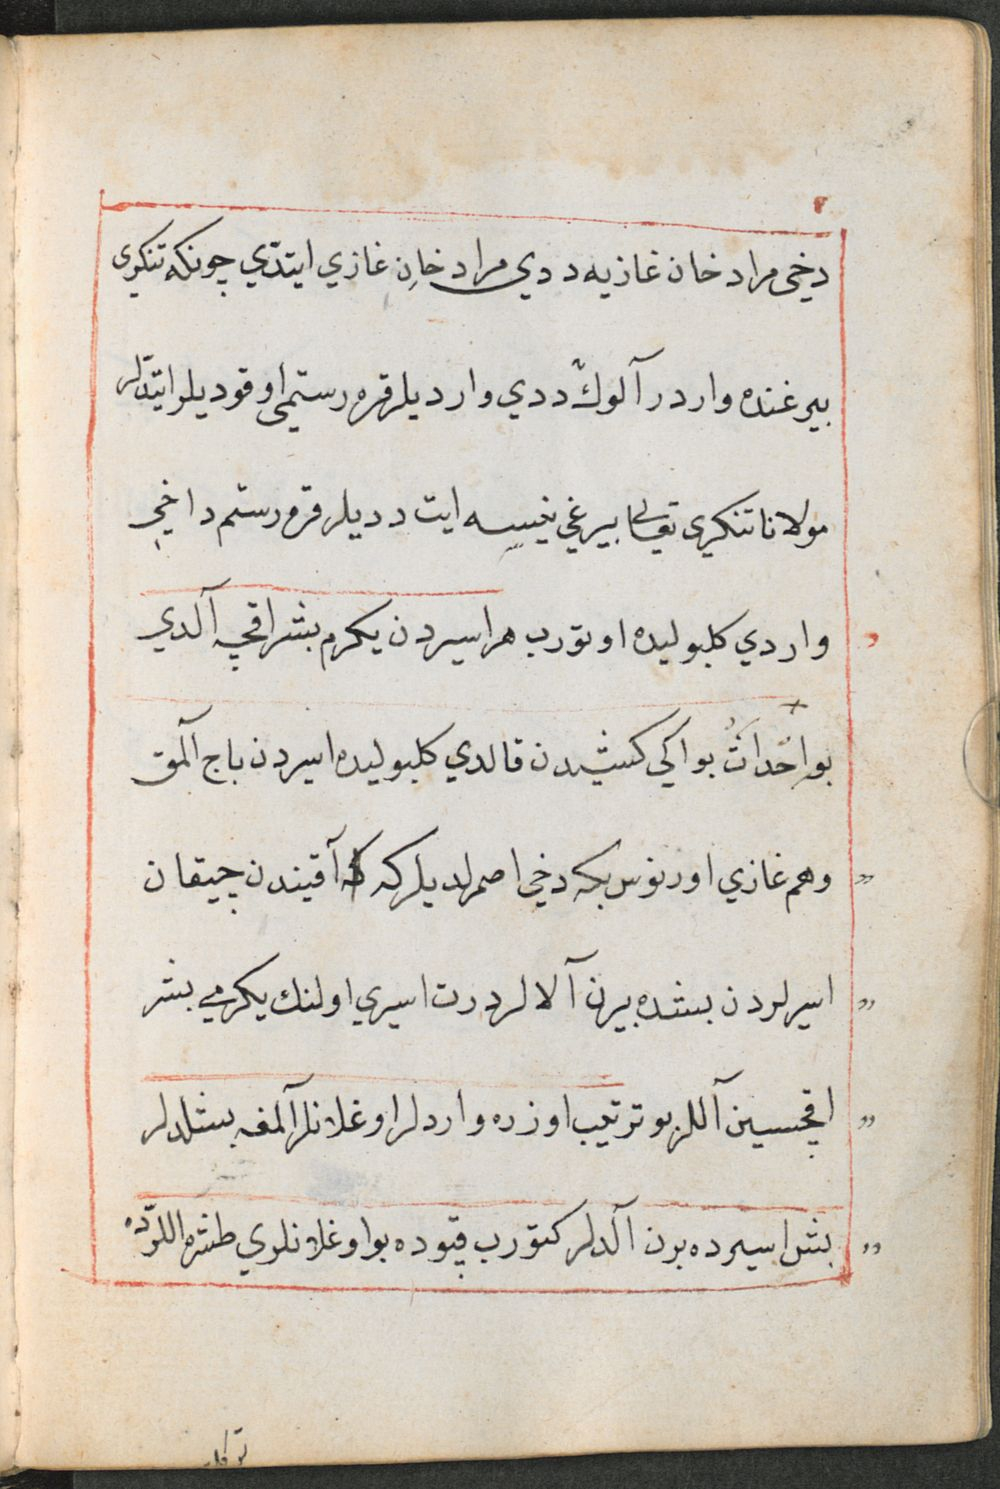 دخي مراد خان غازيه ددي مراد خان غازي ايتدّي چونكه تنكري
بيرغنده واردر آلوكْ ددي وارديلر قره رستمي اوقوديلر ايتدّلر
مولانا تنكري تعالى بيرغي نيسه ايت ددديلر قره رستم داخي
واردي كلبوليده اوتورب هر اسيردن يكرم بش اقچه آلدي
بو احداث بو اكي كشيدن قالدي كلبوليده اسيردن باج آلمق
وهم غازي اورنوس بكه دخي اصمرلديلر كه آقيندن چيقان
اسيرلردن بشده بيرن آلالر درت اسيري اولنك يكرمي بش
اقچسين آللر بو ترتيب اوزره واردلر اوغلانلر آلمغه بشلدلر
بش اسيرده برن آلدلر كتورب قپوده بو اوغلانلري طشره اللرّده